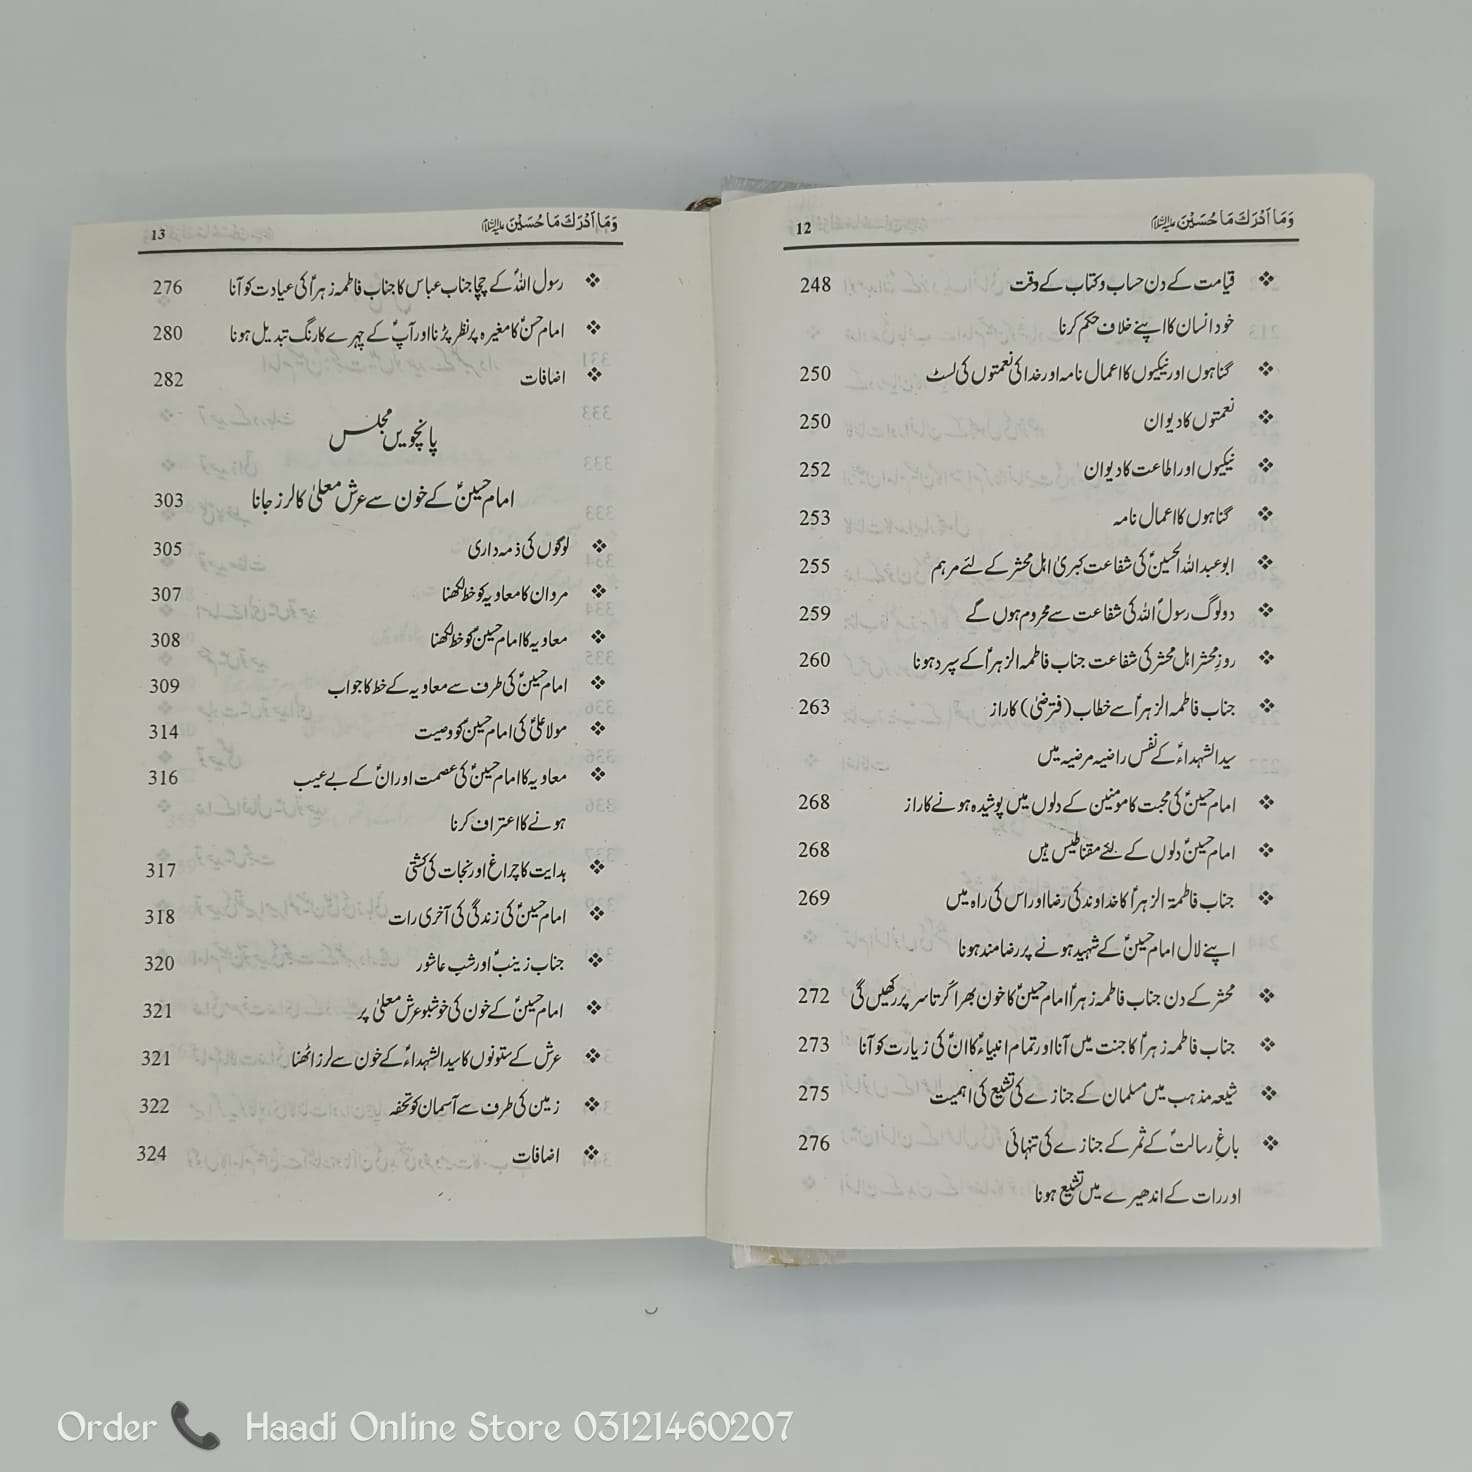 وَمَا اَدْرَكَ مَا حُسَيْنَ علیہ السلام 12
❖ قیامت کے دن حساب و کتاب کے وقت 248
خود انسان کا اپنے خلاف حکم کرنا
❖ گناہوں اور نیکیوں کا اعمال نامہ اور خدا کی نعمتوں کی لسٹ 250
❖ نعمتوں کا دیوان 250
❖ نیکیوں اور اطاعت کا دیوان 252
❖ گناہوں کا اعمال نامہ 253
❖ ابو عبداللہ الحسینؑ کی شفاعت کبریٰ اہل محشر کے لئے مرہم 255
❖ دو لوگ رسولؐ اللہ کی شفاعت سے محروم ہوں گے 259
❖ روزِ محشر اہل محشر کی شفاعت جناب فاطمہ الزہراؑ کے سپرد ہونا 260
❖ جناب فاطمہ الزہراؑ سے خطاب (فترضیٰ) کا راز 263
سید الشہداءؑ کے نفس راضیہ مرضیہ میں
❖ امام حسینؑ کی محبت کا مومنین کے دلوں میں پوشیدہ ہونے کا راز 268
❖ امام حسینؑ دلوں کے لئے مقناطیس ہیں 268
❖ جناب فاطمۃ الزہراؑ کا خداوند کی رضا اور اس کی راہ میں 269
اپنے لال امام حسینؑ کے شہید ہونے پر رضامند ہونا
❖ محشر کے دن جناب فاطمہ زہراؑ امام حسینؑ کا خون بھرا کرتا سر پر رکھیں گی 272
❖ جناب فاطمہ زہراؑ کا جنت میں آنا اور تمام انبیاءؑ کا انؑ کی زیارت کو آنا 273
❖ شیعہ مذہب میں مسلمان کے جنازے کی تشیع کی اہمیت 275
❖ باغِ رسالتؐ کے ثمر کے جنازے کی تنہائی 276
اور رات کے اندھیرے میں تشیع ہونا
وَمَا اَدْرَكَ مَا حُسَيْنَ علیہ السلام 13
❖ رسول اللہؐ کے چچا جناب عباس کا جناب فاطمہ زہراؑ کی عیادت کو آنا 276
❖ امام حسنؑ کا مغیرہ پر نظر پڑنا اور آپؑ کے چہرے کا رنگ تبدیل ہونا 280
❖ اضافات 282
پانچویں مجلس
امام حسینؑ کے خون سے عرش معلیٰ کا لرز جانا 303
❖ لوگوں کی ذمہ داری 305
❖ مروان کا معاویہ کو خط لکھنا 307
❖ معاویہ کا امام حسینؑ کو خط لکھنا 308
❖ امام حسینؑ کی طرف سے معاویہ کے خط کا جواب 309
❖ مولا علیؑ کی امام حسینؑ کو وصیت 314
❖ معاویہ کا امام حسینؑ کی عصمت اور انؑ کے بے عیب 316
ہونے کا اعتراف کرنا
❖ ہدایت کا چراغ اور نجات کی کشتی 317
❖ امام حسینؑ کی زندگی کی آخری رات 318
❖ جناب زینبؑ اور شب عاشور 320
❖ امام حسینؑ کے خون کی خوشبو عرش معلیٰ پر 321
❖ عرش کے ستونوں کا سید الشہداءؑ کے خون سے لرز اٹھنا 321
❖ زمین کی طرف سے آسمان کو تحفہ 322
❖ اضافات 324
Order Haadi Online Store 03121460207